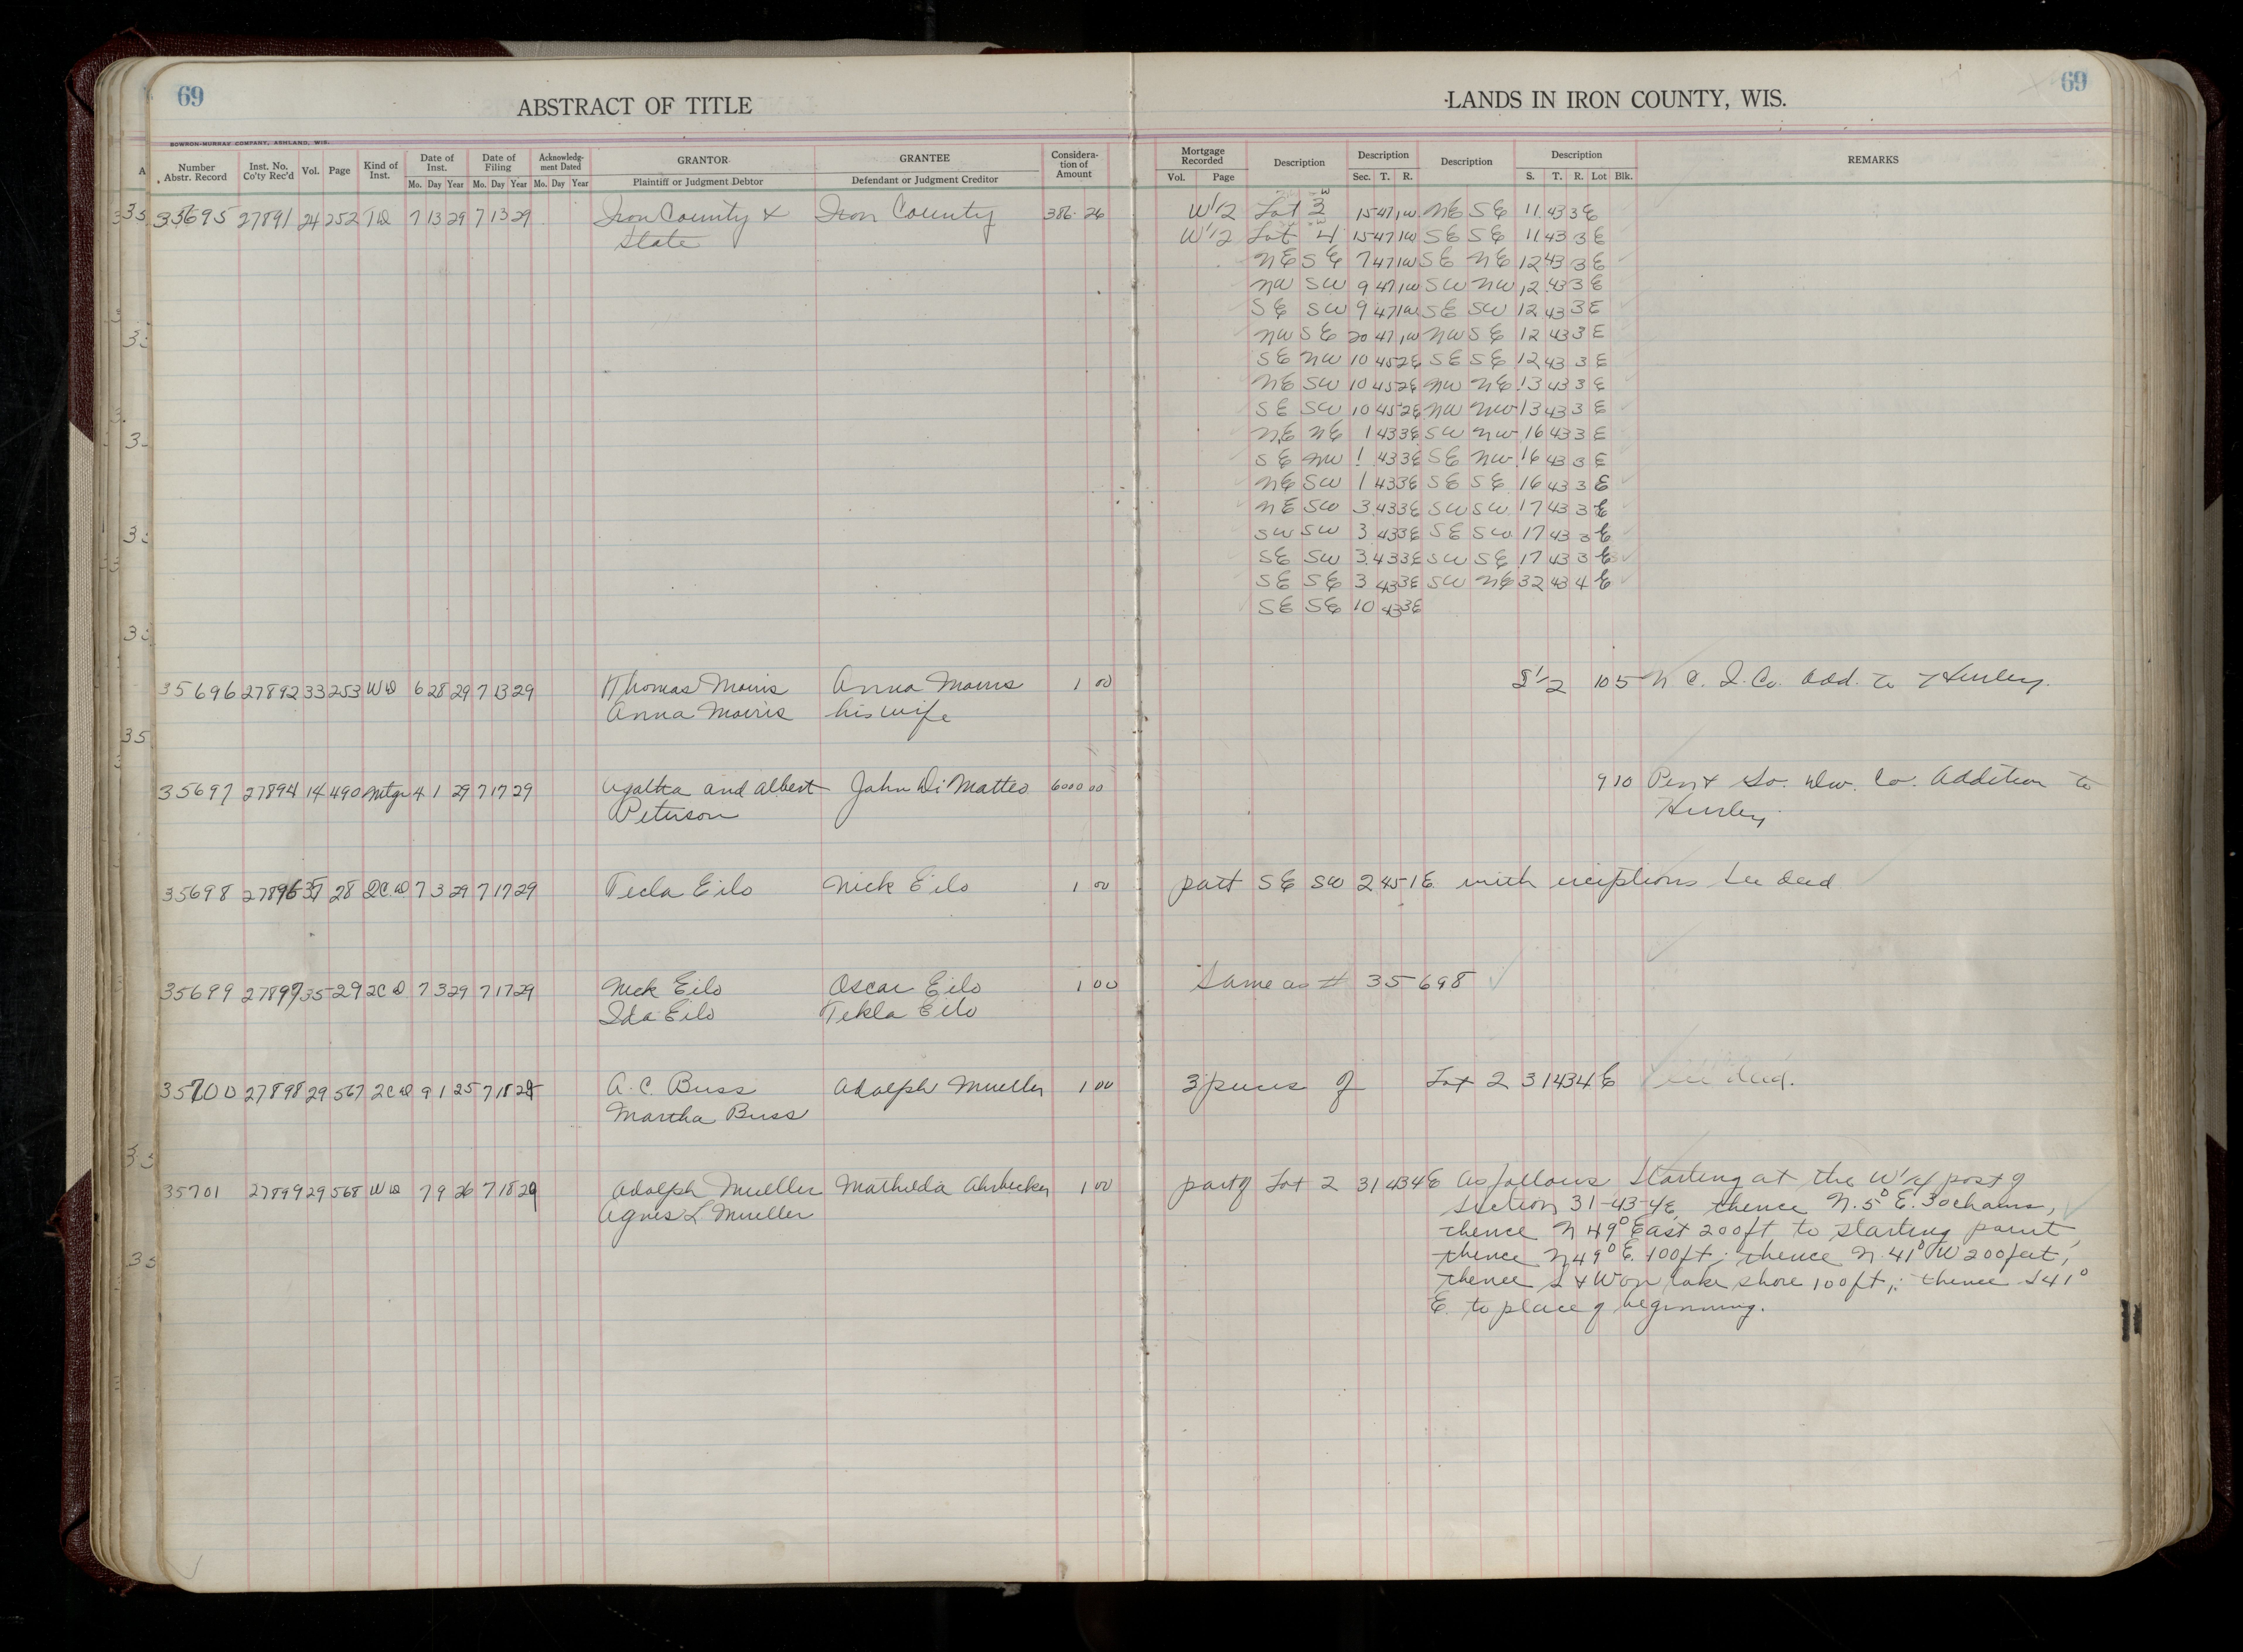 69
ABSTRACT OF TITLE
BOWRON-MURRAY COMPANY, ASHLAND, WIS.
Number Abstr. Record Inst. No. Co'ty Rec'd Vol. Page Kind of Inst. Date of Inst. Mo. Day Year Date of Filing Mo. Day Year Acknowledg-ment Dated Mo. Day Year GRANTOR Plaintiff or Judgment Debtor GRANTEE Defendant or Judgment Creditor Considera-tion of Amount
35695 27891 24 252 TD 7 13 29 7 13 29 Iron County & Iron County 386 26
State
35696 27892 33 253 WD 6 28 29 7 13 29 Thomas Morris Anna Morris 1 00
Anna Morris his wife
35697 27894 14 490 Mtg 4 1 29 7 17 29 Agatha and Albert John Di Matteo 6000 00
Peterson
35698 27896 35 28 QCD 7 3 29 7 17 29 Tecla Eilo Nick Eilo 1 00
35699 27897 35 29 QCD 7 3 29 7 17 29 Nick Eilo Oscar Eilo 1 00
Ida Eilo Tekla Eilo
35700 27898 29 567 QCD 9 1 25 7 18 29 A. C. Buss Adolph Mueller 1 00
Martha Buss
35701 27899 29 568 WD 7 9 26 7 18 29 Adolph Mueller Mathilda Ahrbecker 1 00
Agnes L Mueller
LANDS IN IRON COUNTY, WIS.
69
Mortgage Recorded Vol. Page Description Description Sec. T. R. Description Description S. T. R. Lot Blk. REMARKS
W1/2 Lot 3 15 47 1W NE SE 11 43 3E
W1/2 Lot 4 15 47 1W SE SE 11 43 3E
NE SE 7 47 1W SE NE 12 43 3E
NW SW 9 47 1W SW NW 12 43 3E
SE SW 9 47 1W SE SW 12 43 3E
NW SE 20 47 1W NW SE 12 43 3E
SE NW 10 45 2E SE SE 12 43 3E
NE SW 10 45 2E NW NE 13 43 3E
SE SW 10 45 2E NW NW 13 43 3E
NE NE 1 43 3E SW NW 16 43 3E
SE NW 1 43 3E SE NW 16 43 3E
NE SW 1 43 3E SE SE 16 43 3E
NE SW 3 43 3E SW SW 17 43 3E
SW SW 3 43 3E SE SW 17 43 3E
SE SW 3 43 3E SW SE 17 43 3E
SE SE 3 43 3E SW NE 32 43 4E
SE SE 10 43 3E
S1/2 10 5 N. C. I. Co. Add. to Hurley.
9 10 Pen & So. Dw. Co. Addition to
Hurley
part SE SW 2 45 1E with exceptions See deed
Same as # 35698
3 pieces of Lot 2 31 43 4E See deed.
part of Lot 2 31 43 4E As follows Starting at the W1/4 post of
Section 31-43-4E, thence N. 5° E. 30 chains,
thence N 49° East 200 ft to starting point,
thence N 49° E. 100 ft; thence N. 41° W 200 feet,
thence S & W on lake shore 100 ft,; thence S 41°
E. to place of beginning.